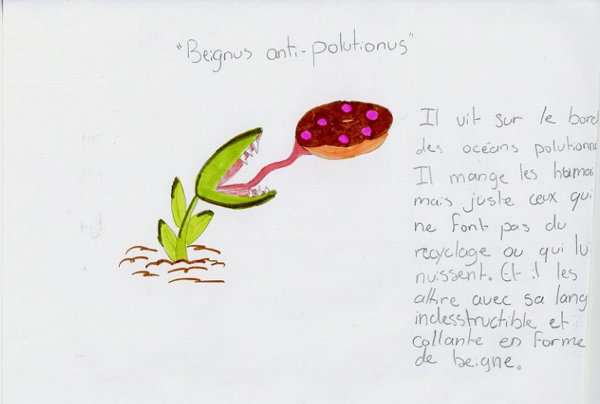 "Beignus anti-polutionus"
Il vit sur le bord
des océans polutionné
Il mange les humai
mais juste ceux qui
ne font pas du
recyclage ou qui lui
nuissent. Et il les
attire avec sa lang
indesstructible et
collante en forme
de beigne.